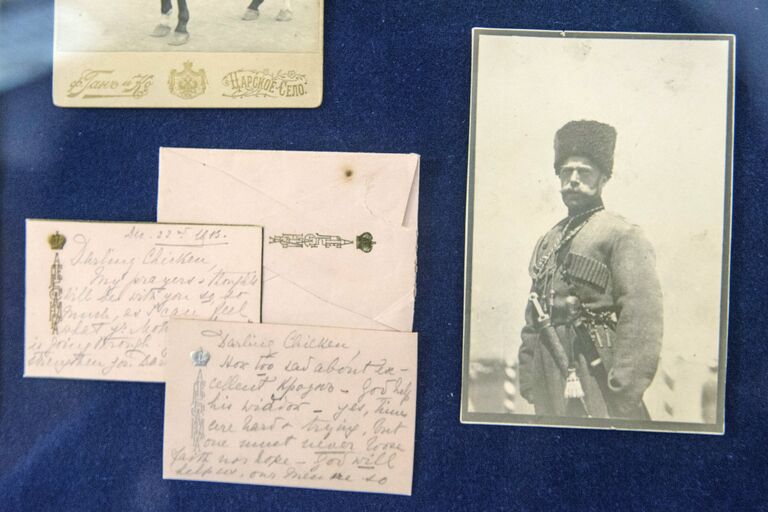 Ф. Ганъ и Ко
Царское-Село.
Dec. 22nd 1915.
Darling Chicken,
My prayers & thoughts
will be with you so so
much, as I can feel
what yr. Mot
is going through
strengthen you.
Darling Chicken
How too sad about Ex-
cellent Кроднъ - God help
his widow - yes, times
are hard & trying, but
one must never loose
faith nor hope - God will
help us, our men are so